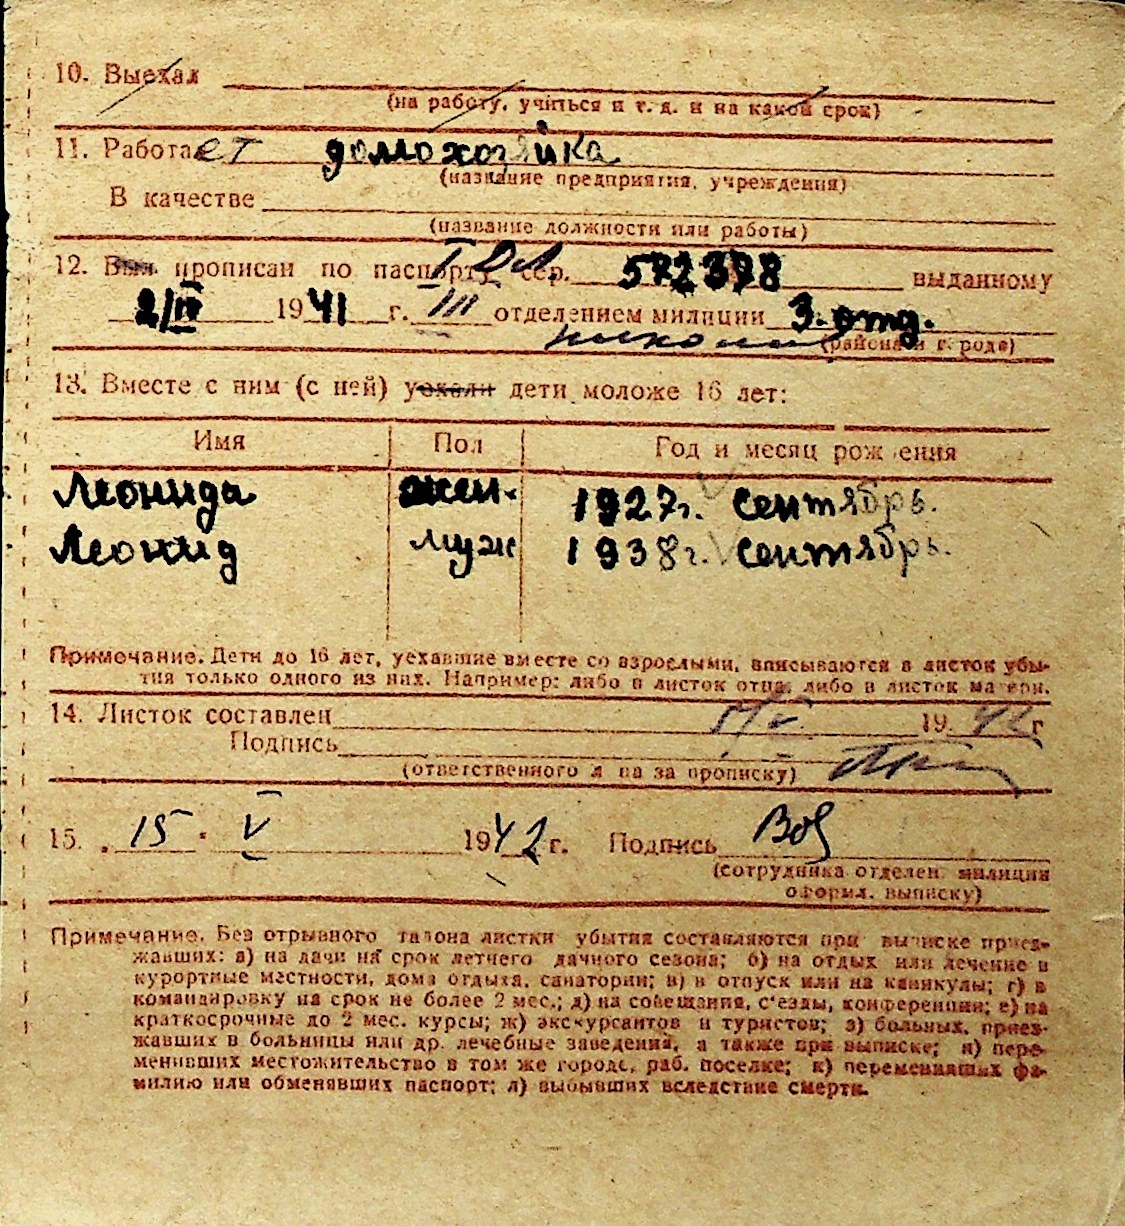 10. Выехал
(на работу, учиться и т. д. и на какой срок)
11. Работает домохозяйка
(название предприятия, учреждения)
В качестве
(название должности или работы)
12. Был прописан по паспорту сер. 572378 выданному
2/IV 1941 г. III отделением милиции 3. отд.
(района и города)
13. Вместе с ним (с ней) уехали дети моложе 16 лет:
Имя Пол Год и месяц рождения
Леонида жен. 1927г. сентябрь.
Леонид муж 1938г. сентябрь.
Примечание. Дети до 16 лет, уехавшие вместе со взрослыми, вписываются в листок убы-
тия только одного из них. Например: либо в листок отца, либо в листок матери.
14. Листок составлен 5/V 1942г
Подпись
(ответственного лица за прописку)
15. 15 V 1942 г. Подпись
(сотрудника отделен. милиции
оформл. выписку)
Примечание. Без отрывного талона листки убытия составляются при выписке приез-
жавших: а) на дачи на срок летнего дачного сезона; б) на отдых или лечение в
курортные местности, дома отдыха, санатории; в) в отпуск или на каникулы; г) в
командировку на срок не более 2 мес.; д) на совещания, с'езды, конференции; е) на
краткосрочные до 2 мес. курсы; ж) экскурсантов и туристов; з) больных, приез-
жавших в больницы или др. лечебные заведения, а также при выписке; и) пере-
менивших местожительство в том же городе, раб. поселке; к) переменивших фа-
милию или обменявших паспорт; л) выбывших вследствие смерти.